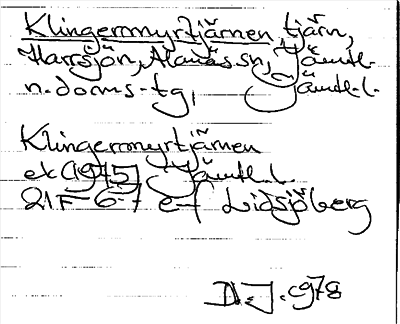 Klingermyrtjärnen tjärn,
Harrsjön, Alanäs sn, Jämtl.
n.doms.tg, Jämtl.l.
Klingermyrtjärnen
ek (1975) Jämtl.l.
21F 6-7 e-f Lidsjöberg
D.J. 1978